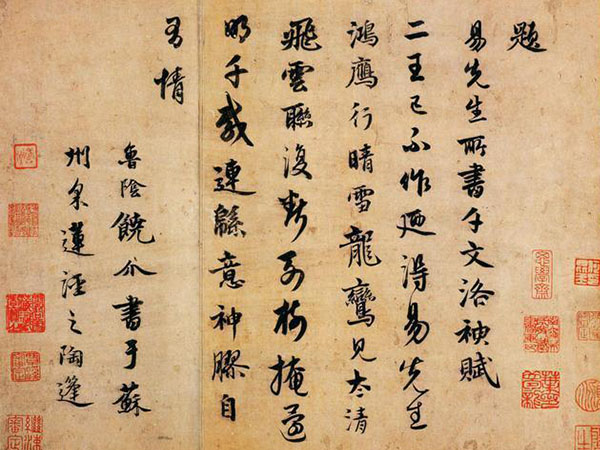 題
易先生所書千文洛神賦
二王已不作迺得易先生
鴻鷹行晴雪龍鸞見太清
飛雲聯復斷樹掩還
明千載連緜意神膠自
有情
魯陰饒介書于蘇
州采蓮涇之陶蓬